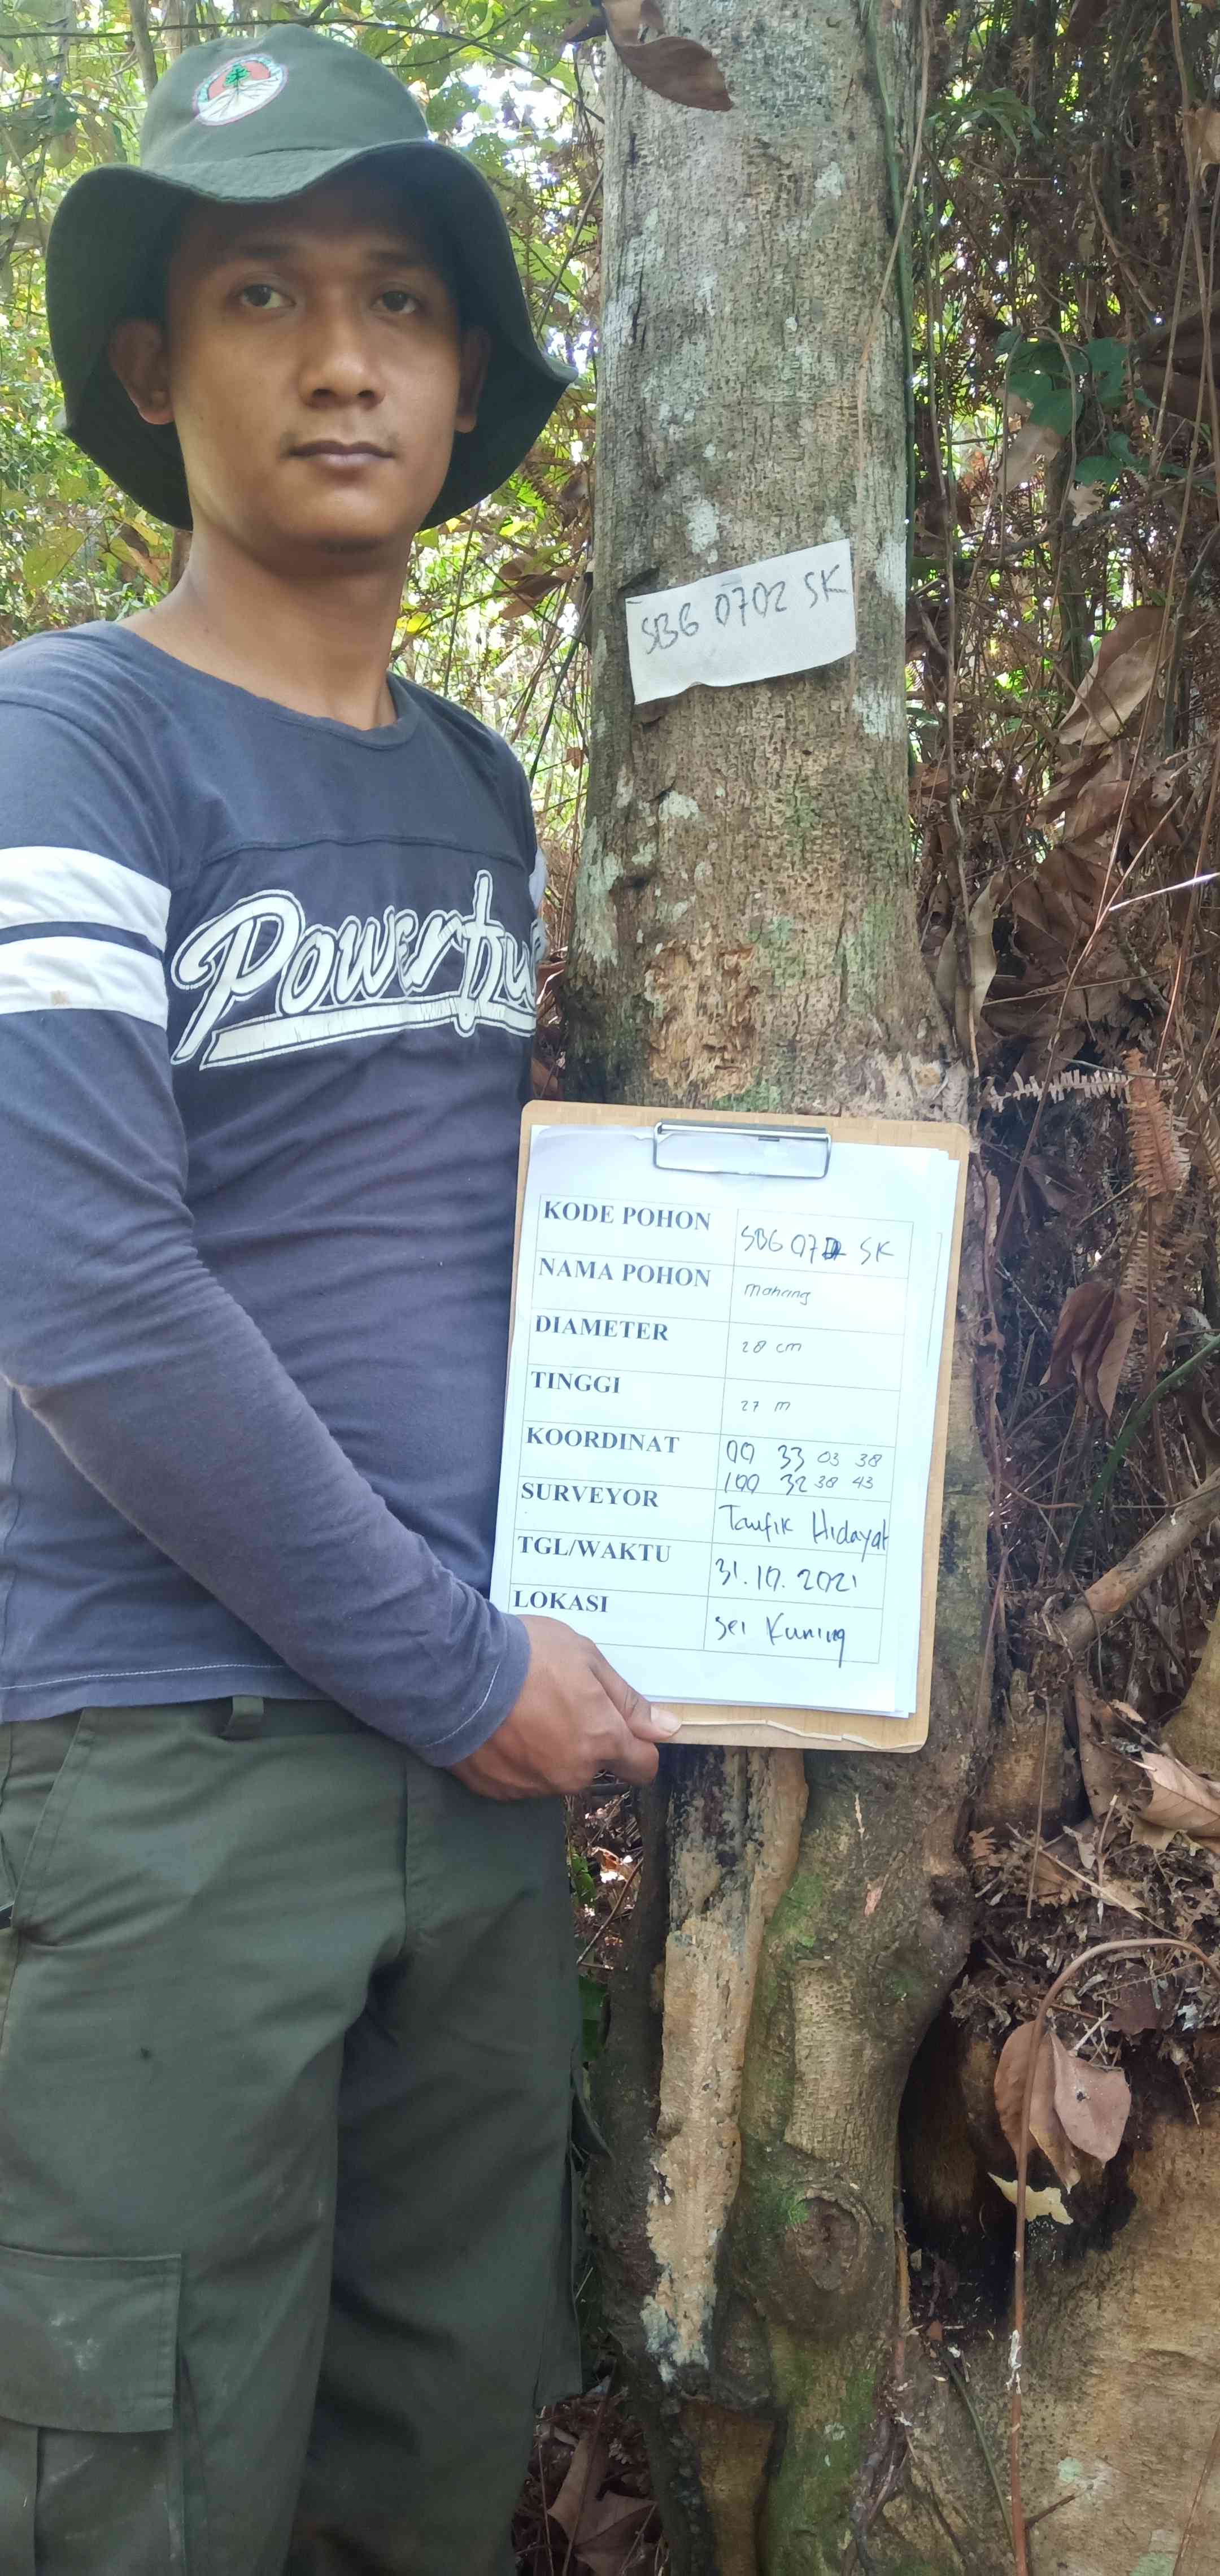 SBG 0702 SK
Powerbu
KODE POHON SBG 0702 SK
NAMA POHON Mahang
DIAMETER 28 cm
TINGGI 27 m
KOORDINAT 00 33 03 38
100 32 38 43
SURVEYOR Taufik Hidayat
TGL/WAKTU 31.10.2021
LOKASI Sei Kuning